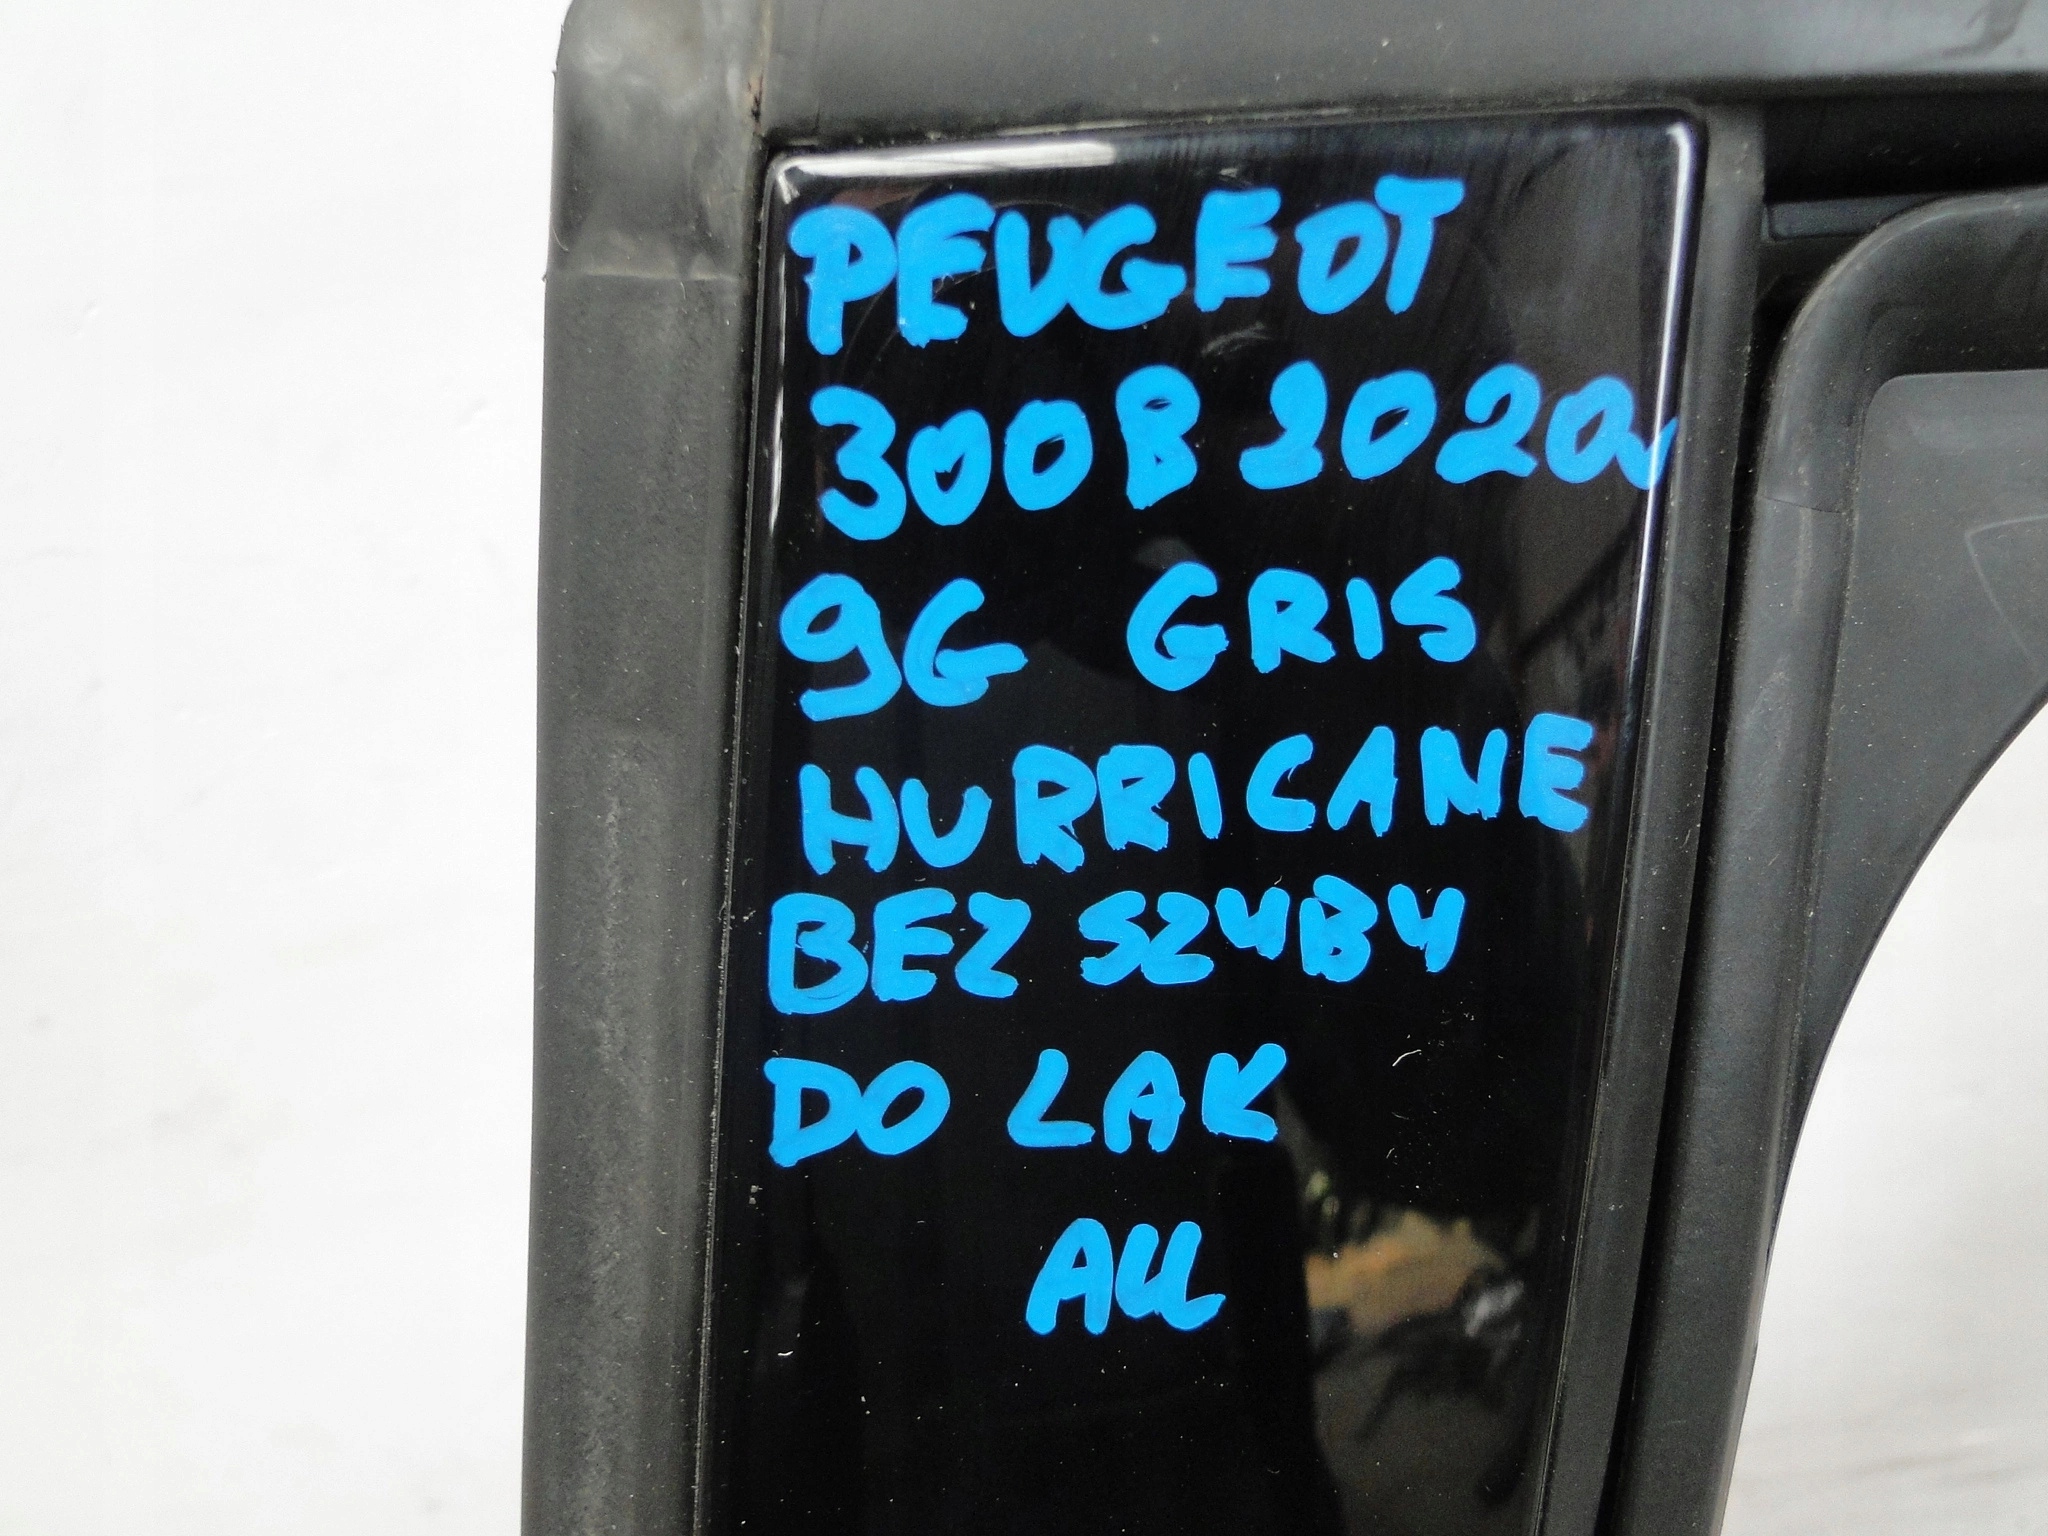 PEUGEOT
3008 2020r
9G GRIS
HURRICANE
BEZ SZYBY
DO LAK
ALL